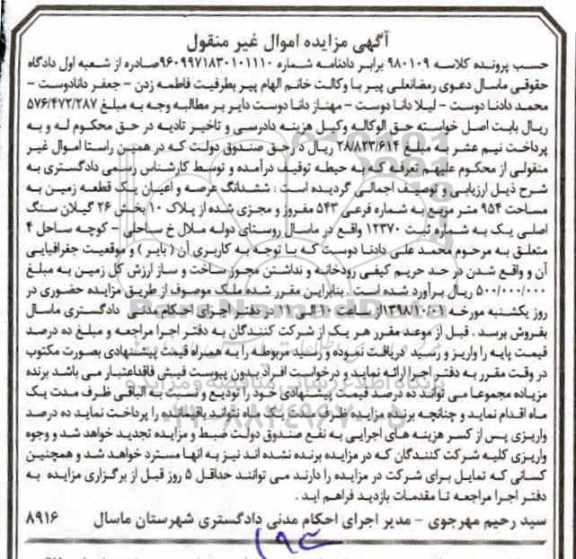 آگهی مزایده اموال غیر منقول
حسب پرونده کلاسه ۹۸۰۱۰۹ برابر دادنامه شماره ۹۶۰۹۹۷۱۸۳۰۱۰۱۱۱۰صادره از شعبه اول دادگاه
حقوقی ماسال دعوی رمضانعلی پیر با وکالت خانم الهام پیر بطرفیت فاطمه زدن - جعفر دانادوست -
محمد دادنا دوست - لیلا دانا دوست - مهناز دانا دوست دایر بر مطالبه وجه به مبلغ ۵۷۶/۴۷۲/۲۸۷
ریال بابت اصل خواسته حق الوکاله وکیل هزینه دادرسی و تاخیر تادیه در حق محکوم له و به
پرداخت نیم عشر به مبلغ ۲۸۸۲۳/۶۱۴ ریال درحق صندوق دولت که در همین راستا اموال غیر
منقولی از محکوم علیهم تعرفه که به حیطه توقیف درآمده و توسط کارشناس رسمی دادگستری به
شرح ذیل ارزیابی و توصیف اجمالی گردیده است : ششدانگ عرصه و اعیان یک قطعه زمین به
مساحت ۹۵۴ متر مربع به شماره فرعی ۵۴۳ مفروز و مجزی شده از پلاک ۱۰ بخش ۲۶ گیلان سنگ
اصلی یک به شماره ثبت ۱۲۳۷۰ واقع در ماسال روستای دوله ملال خ ساحلی - کوچه ساحل ۴
متعلق به مرحوم محمد علی دادنا دوست که با توجه به کاربری آن ( بایر ) و موقعیت جغرافیایی
آن و واقع شدن در حد حریم کیفی رودخانه و نداشتن مجوز ساخت و ساز ارزش کل زمین به مبلغ
۵۰۰/۰۰۰/۰۰۰ ریال برآورد شده است . بنابراین مقرر شده ملک موصوف از طریق مزایده حضوری در
روز یکشنبه مورخه ۱۳۹۸/۱۰/۰۱از ساعت ۱۰ الی ۱۱ در دفتر اجرای احکام مدنی دادگستری ماسال
بفروش برسد . قبل از موعد مقرر هر یک از شرکت کنندگان به دفتر اجرا مراجعه و مبلغ ده درصد
قیمت پایه را واریز و رسید دریافت نموده و رسید مربوطه را به همراه قیمت پیشنهادی بصورت مکتوب
در وقت مقرر به دفتر اجرا ارائه نماید و درخواست افراد بدون پیوست فیش فاقداعتبار می باشد برنده
مزیاده مجموعا می تواند ده درصد قیمت پیشنهادی خود را تودیع و نسبت به الباقی ظرف مدت یک
ماه اقدام نماید و چنانچه برنده مزایده ظرف مدت یک ماه نتواند باقیمانده را پرداخت نماید ده درصد
واریزی پس از کسر هزینه های اجرایی به نفع صندوق دولت ضبط و مزایده تجدید خواهد شد و وجوه
واریزی کلیه شرکت کنندگان که در مزایده برنده نشده اند نیز به انها مسترد خواهد شد و همچنین
کسانی که تمایل برای شرکت در مزایده را دارند می توانند حداقل ۵ روز قبل از برگزاری مزایده به
دفتر اجرا مراجعه تا مقدمات بازدید فراهم اید .
سید رحیم مهرجوی - مدیر اجرای احکام مدنی دادگستری شهرستان ماسال ۸۹۱۶